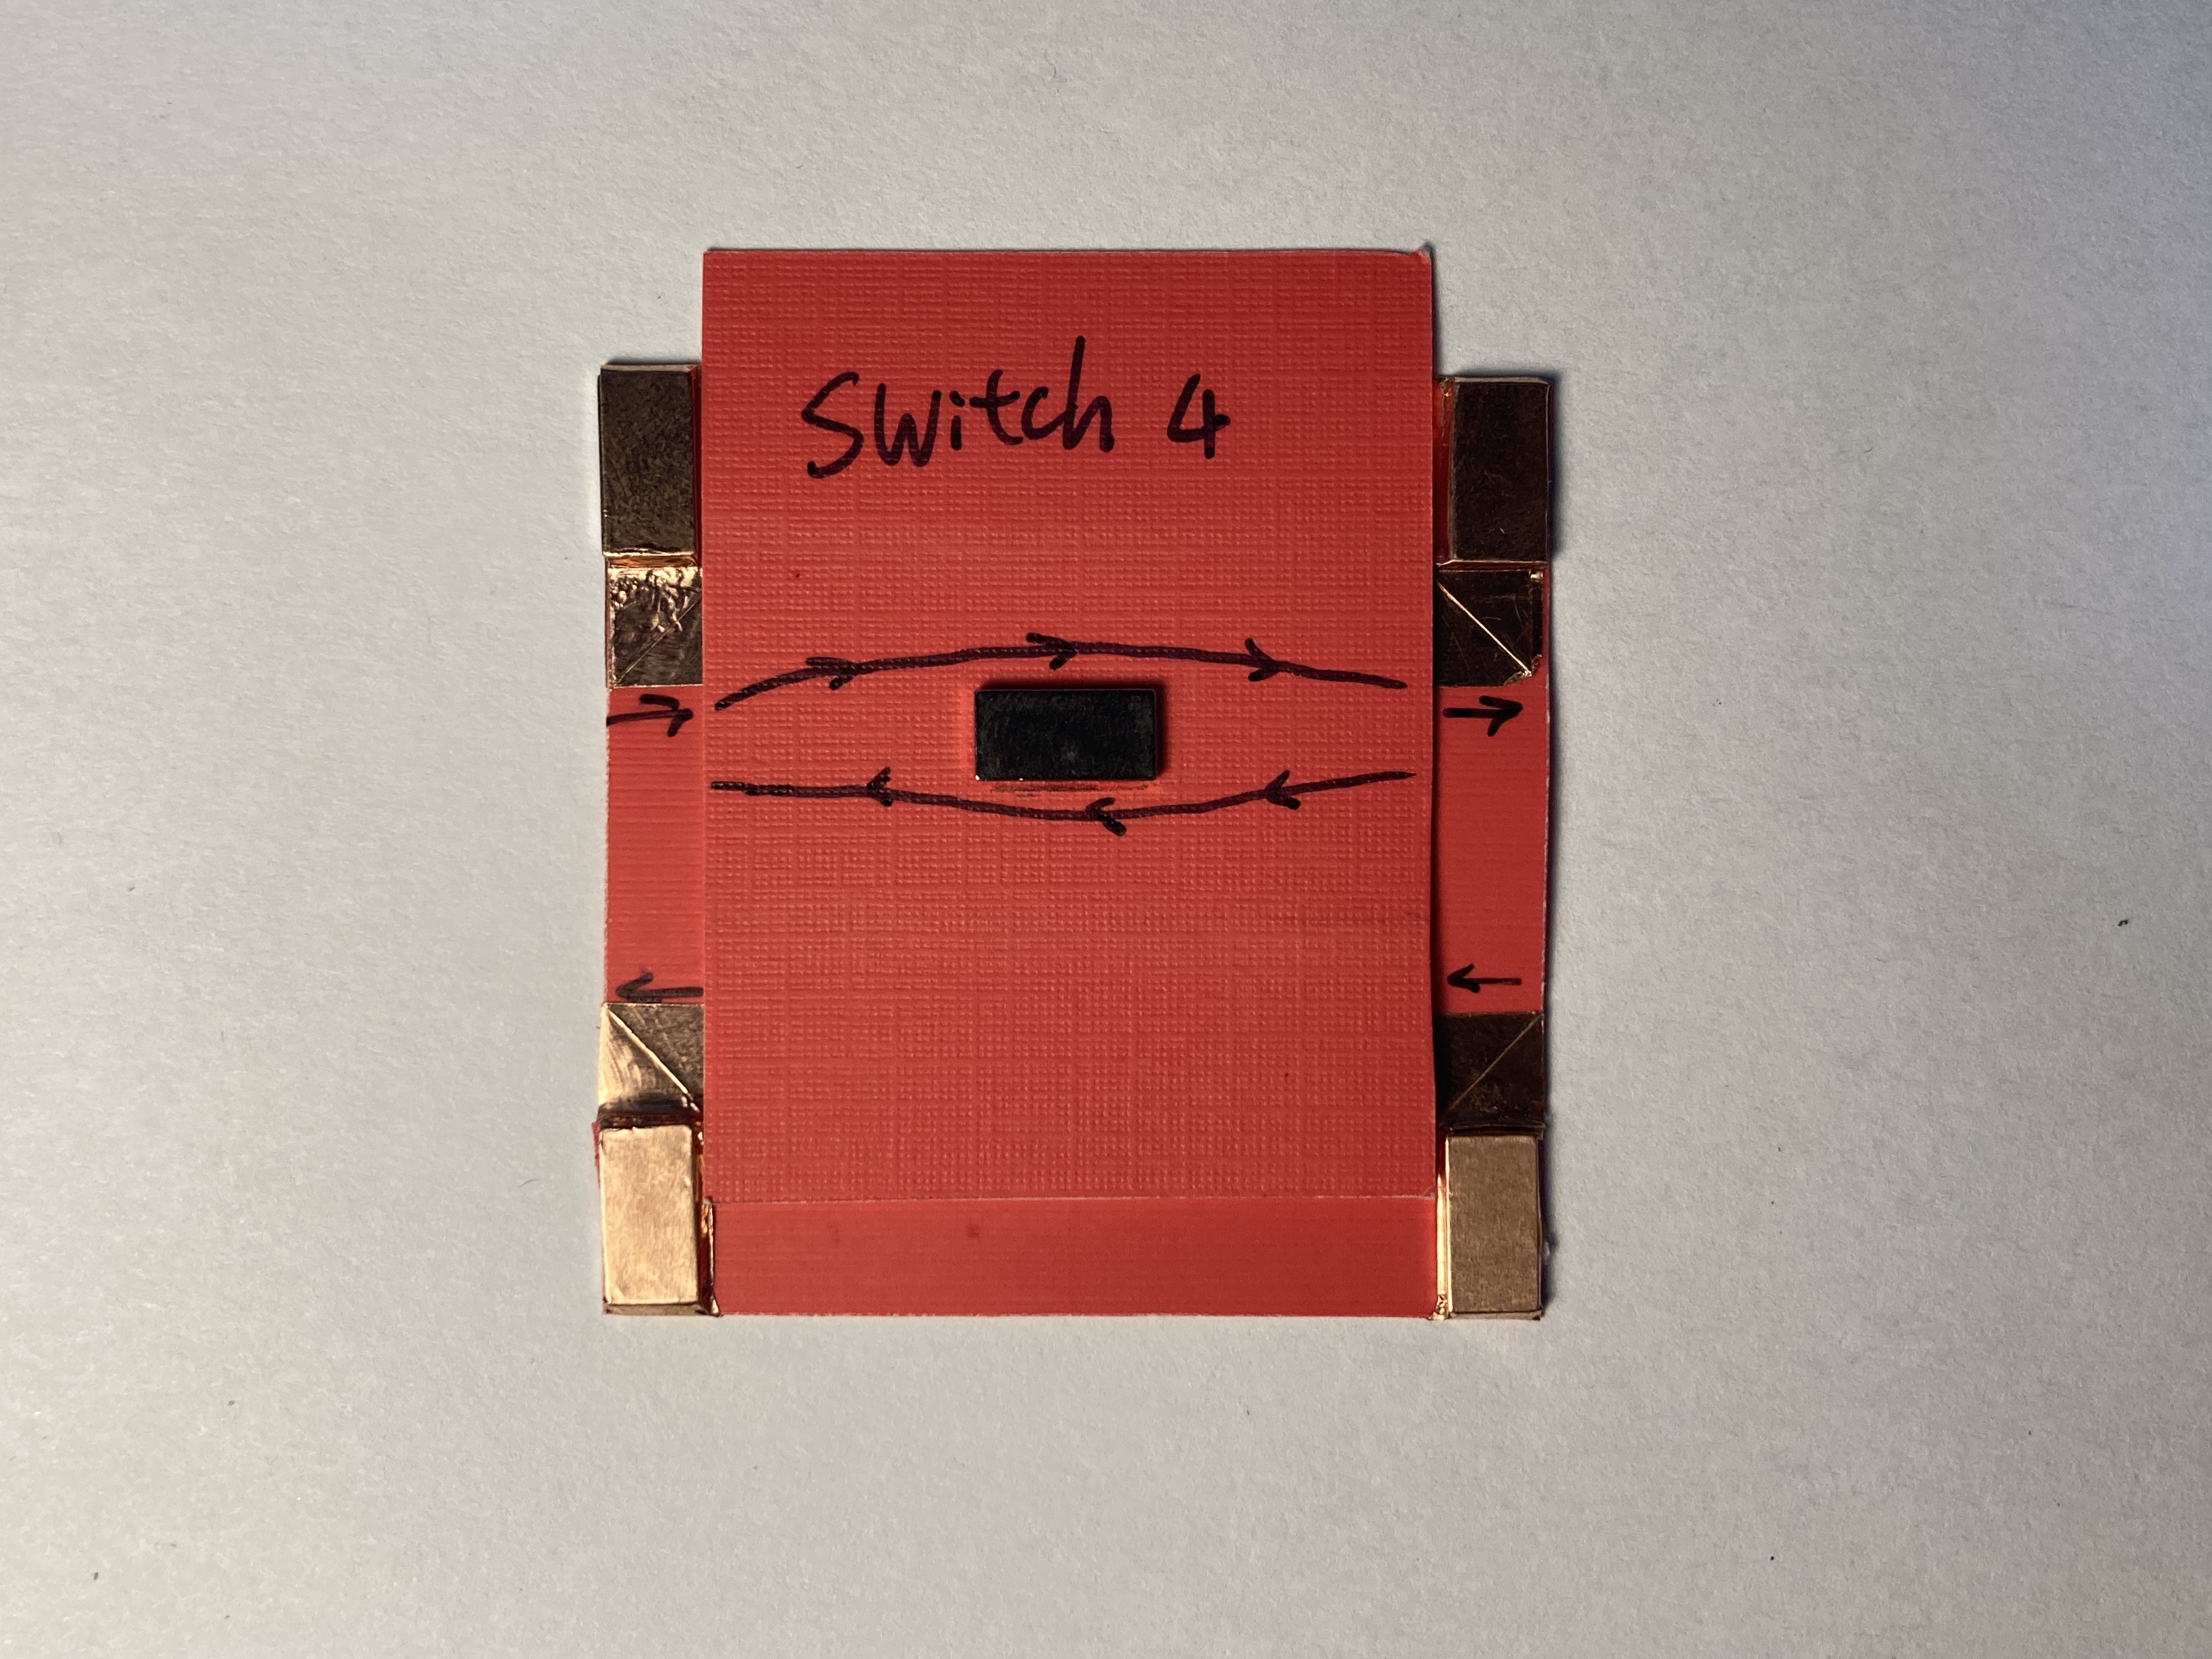 Switch 4